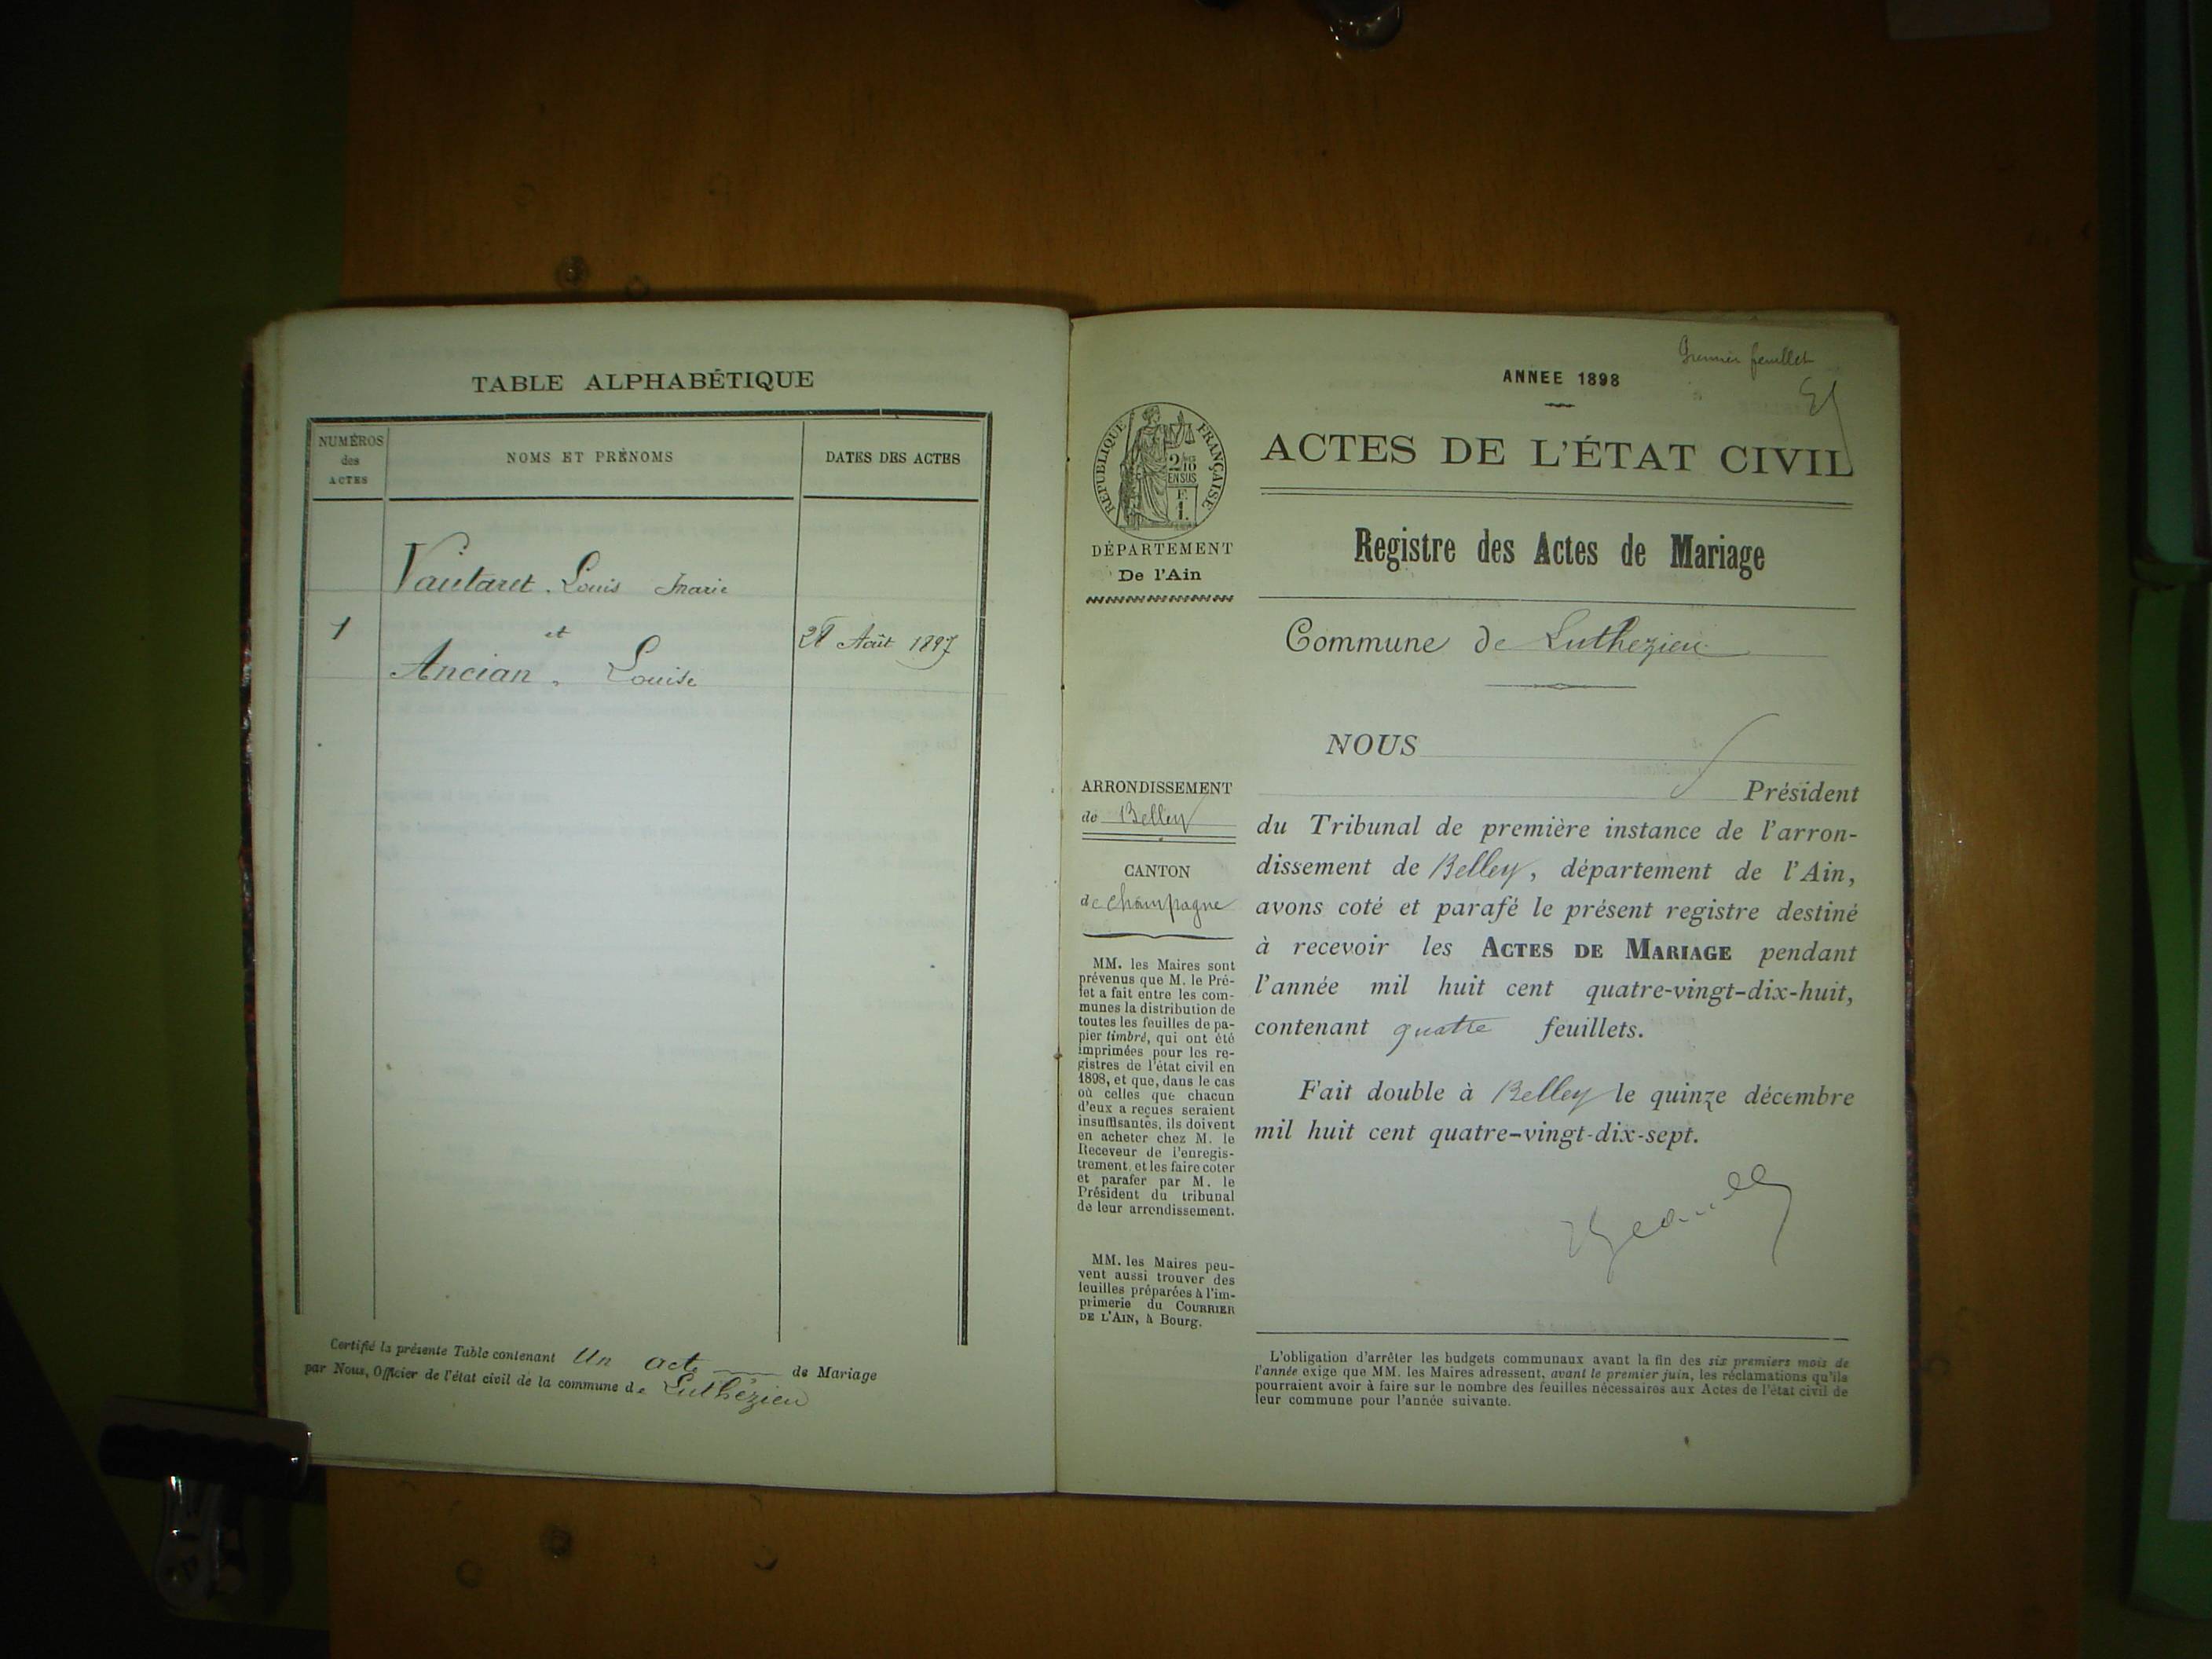 TABLE ALPHABÉTIQUE
NUMÉROS
des
ACTES
NOMS ET PRÉNOMS
DATES DES ACTES
Vautaret. Louis Marie
1
et
28 Août 1897
Ancian. Louise
Certifié la présente Table contenant Un acte de Mariage
par Nous, Officier de l'état civil de la commune de Luthézieu
Premier feuillet
ANNEE 1898
REPUBLIQUE FRANÇAISE
2/10
EN SUS
ACTES DE L'ÉTAT CIVIL
DÉPARTEMENT
De l'Ain
Registre des Actes de Mariage
Commune de Luthezieu
NOUS
Président
du Tribunal de première instance de l'arron-
dissement de Belley, département de l'Ain,
avons coté et parafé le présent registre destiné
à recevoir les ACTES DE MARIAGE pendant
l'année mil huit cent quatre-vingt-dix-huit,
contenant quatre feuillets.
Fait double à Belley le quinze décembre
mil huit cent quatre-vingt-dix-sept.
ARRONDISSEMENT
de Belley
CANTON
de Champagne
MM. les Maires sont
prévenus que M. le Pré-
fet a fait entre les com-
munes la distribution de
toutes les feuilles de pa-
pier timbré, qui ont été
imprimées pour les re-
gistres de l'état civil en
1898, et que, dans le cas
où celles que chacun
d'eux a reçues seraient
insuffisantes, ils doivent
en acheter chez M. le
Receveur de l'enregis-
trement, et les faire coter
et parafer par M. le
Président du tribunal
de leur arrondissement.
MM. les Maires peu-
vent aussi trouver des
feuilles préparées à l'im-
primerie du COURRIER
DE L'AIN, à Bourg.
L'obligation d'arrêter les budgets communaux avant la fin des six premiers mois de
l'année exige que MM. les Maires adressent, avant le premier juin, les réclamations qu'ils
pourraient avoir à faire sur le nombre des feuilles nécessaires aux Actes de l'état civil de
leur commune pour l'année suivante.